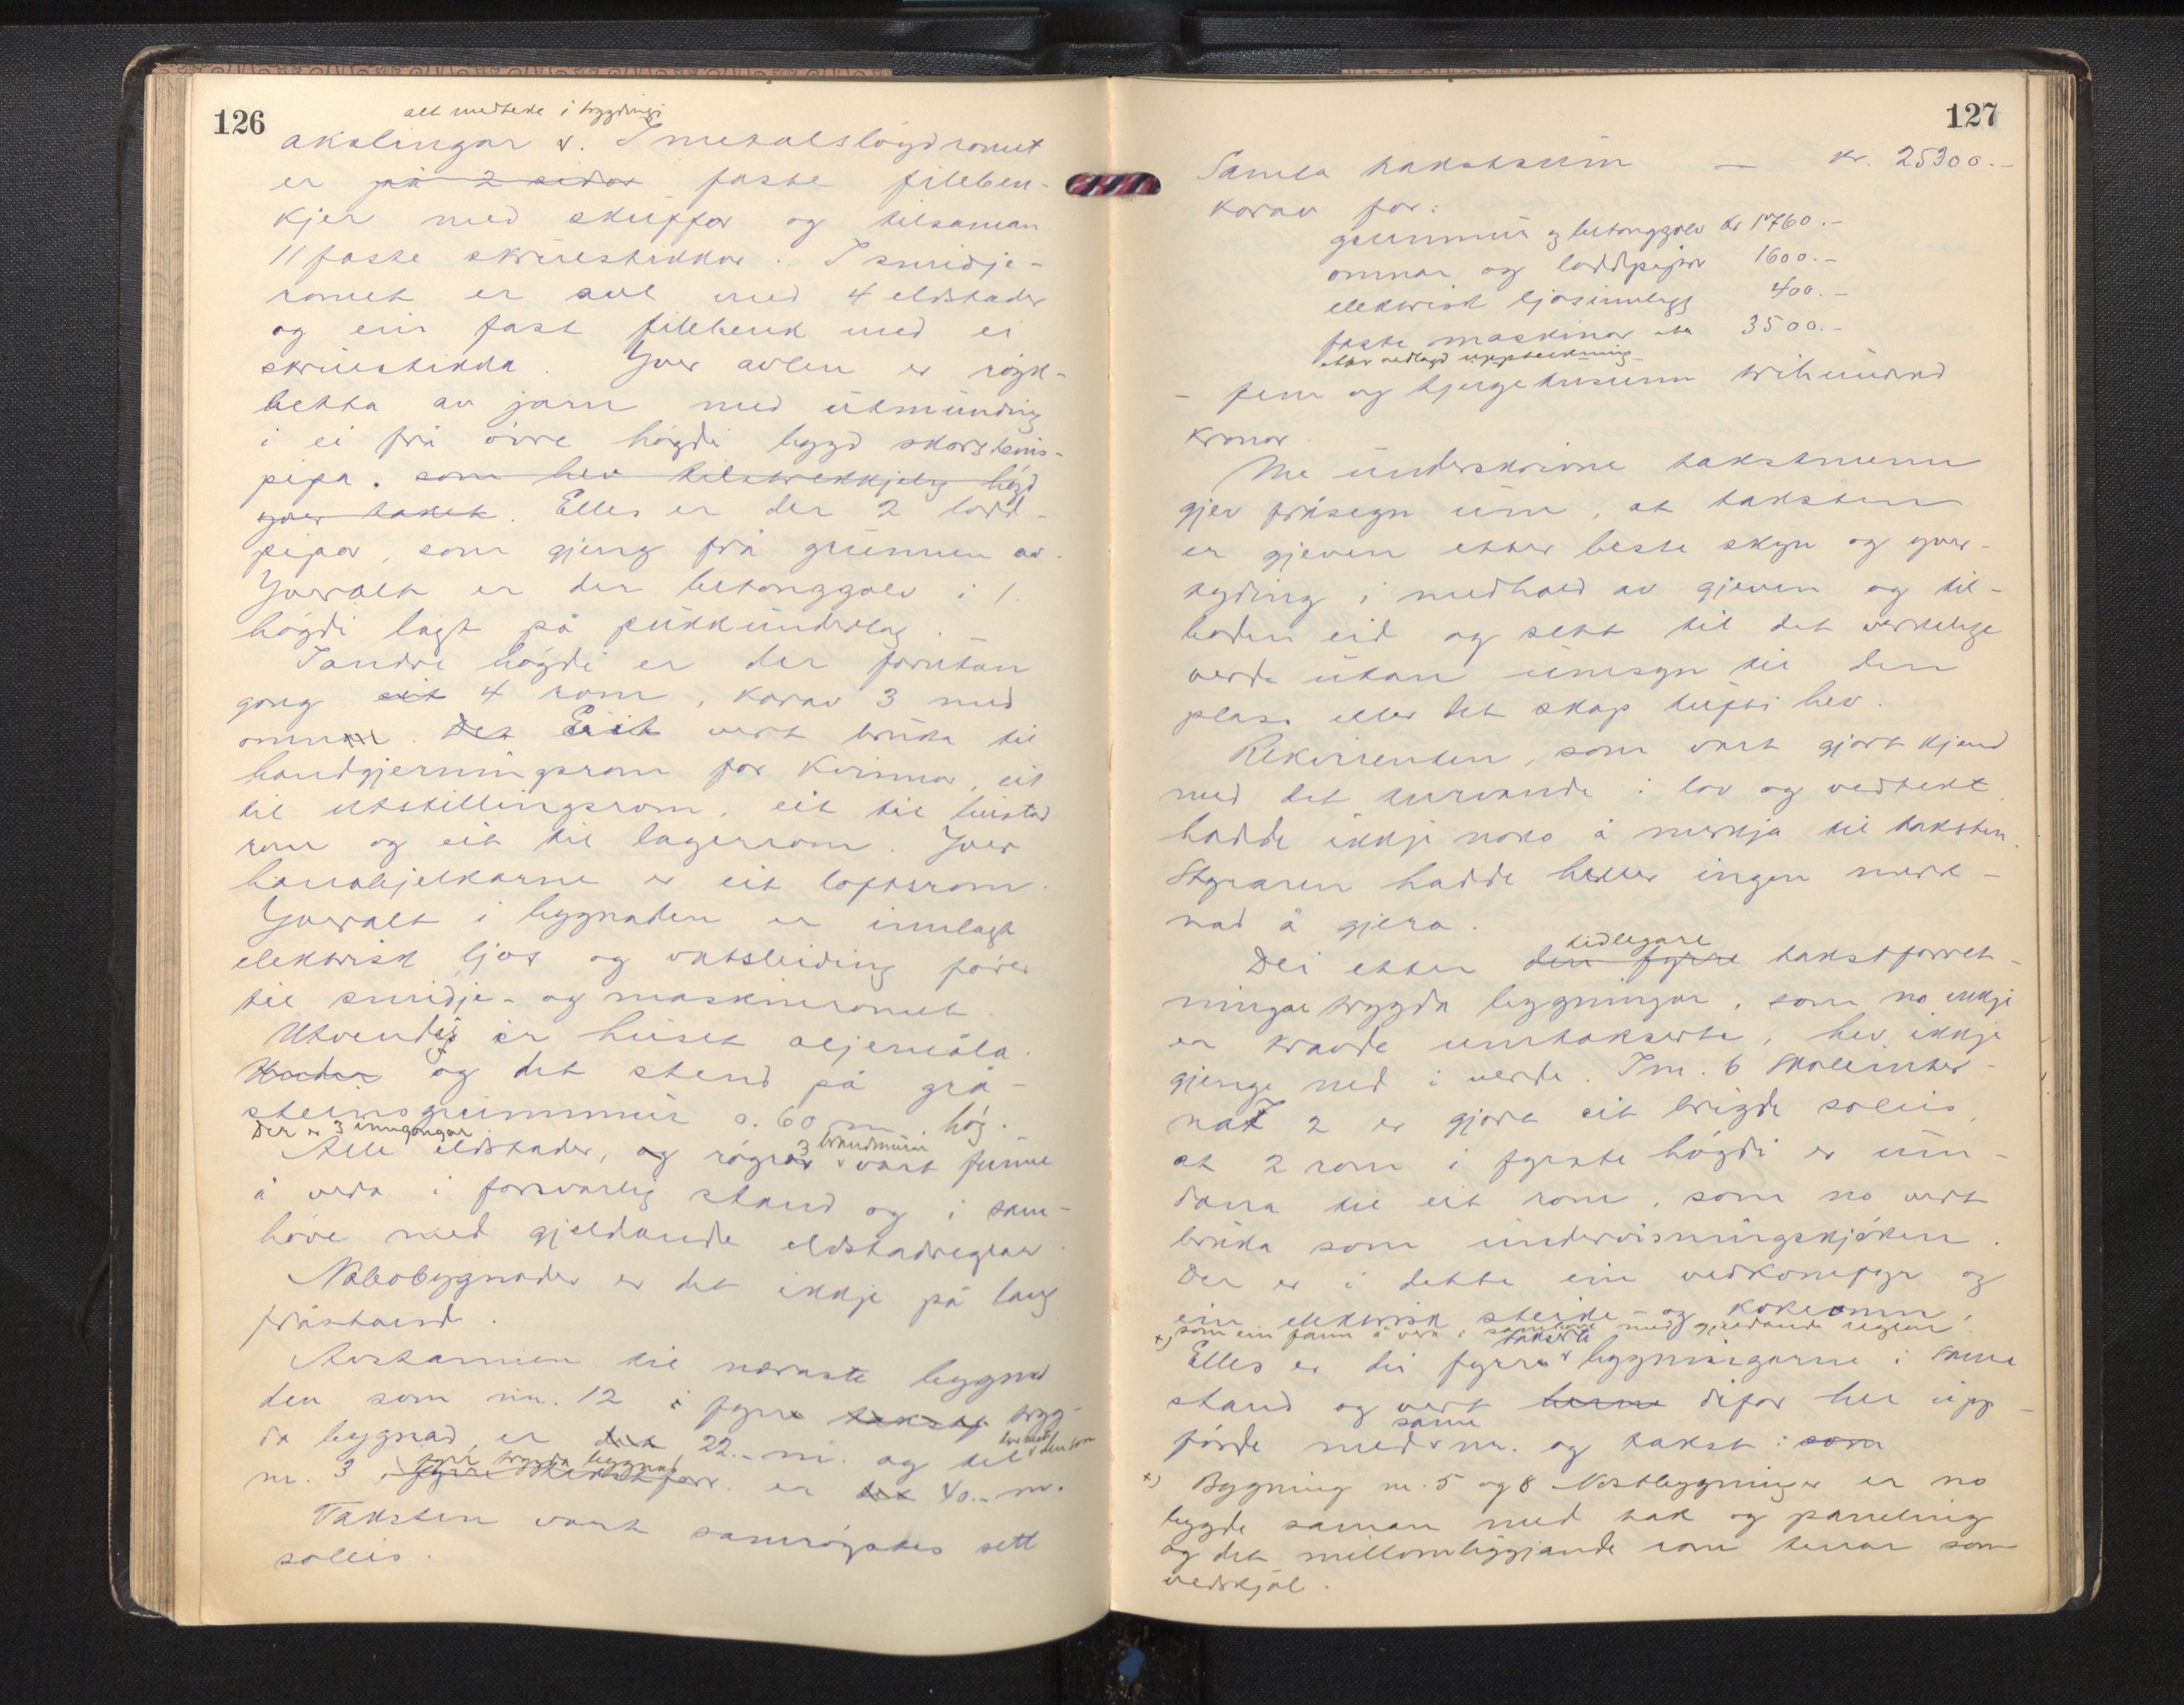 126
alt medteke i trygdingi
akslingar v. I metalsløydromet
er på 2 sidor faste fileben-
kjer med skuffor og tilsaman
11 faste skruestikkor. I smidje-
romet er avl med 4 eldstader
og ein fast filebenk med ei
skruestikka. Yver avlen er røyk-
hetta av jarn med utmunding
i ei frå øvre høgdi bygd skorsteins-
pipa. som hev tilstrekkjeleg høgd
yver taket. Elles er der 2 lodd-
pipor, som gjeng frå grunnen av.
Yveralt er der betonggolv i 1.
høgdi lagt på pukkunderlag.
I andre høgdi er der forutan
gong eit 4 rom, korav 3 med
omnar. Det Eitt vert bruka til
handgjerningsrom for kvinnor, eit
til utstillingsrom, eit til bustad
rom og eit til lagerrom. Yver
hanebjelkarne er eit loftsrom.
Yveralt i bygnaden er innlagt
elektrisk ljos og vatsleiding fører
til smidje- og maskinromet.
Utvendig er huset oljemåla.
Under og det stend på grå-
steinsgrunnmur o. 60 m. høg.
Der er 3 inngangar
3 brandmurar
Alle eldstader, og røgrør v vart funne
å vera i forsvarlig stand og i sam-
høve med gjeldande eldstadreglar.
Nabobygnader er det ikkje på lang
fråstand.
Avstannen til næraste bygnad
den som nr. 12 i fyrr takst trygg-
da bygnad, er det 22.- m. og til v den som
nr. 3 fyrr trygda bygnad fyrre takstforr. er det 40.- m.
Taksten vart samrøystes sett
soleis.
127
Samla takstsum — kr. 25300.-
korav for:
grunnmur og betonggolv kr 1760.-
omnar og loddpipor 1600.-
elektrisk ljosinnlegg 400.-
faste maskinor etc 3500.-
etter vedlagd uppteikning
- fem og tjuge tusunn trihundrad
kronor.
Me underskrivne takstmenn
gjev fråsegn um, at taksten
er gjeven etter beste skyn og yver-
tyding i medhald av gjeven og til-
boden eid og sett til det verkelege
verde utan umsyn til den
plass eller det skap tufti hev.
Rekvirenten, som vart gjort kjend
med det turvande i lov og vedtekt,
hadde ikkje noko å merkja til taksten.
Styraren hadde heller ingen merk-
nad å gjera.
tidlegare
Dei etter den fyrre takstforret-
ningar trygda bygningar, som no ikkje
er kravde umtakserte, hev ikkje
gjenge ned i verde. I nr. 6 Skuleinter-
nat 2 er gjort eit brigde soleis,
at 2 rom i fyrste høgdi er um-
dana til eit rom, som no vert
bruka som undervisningskjøken.
Der er i dette ein vedkomfyr og
ein elektrisk steike- og kokeomn.
x) som ein fann å vera i samhøve med gjeldande reglar.
takserte
Elles er dei fyrr v bygningarne i same
stand og vert difor her upp-
førde med v same nr. og takst: som
x) Bygning nr. 5 og 8 Vestbygningar er no
bygde saman med tak og paneling
og det millomliggjande rom tenar som
vedskjol.